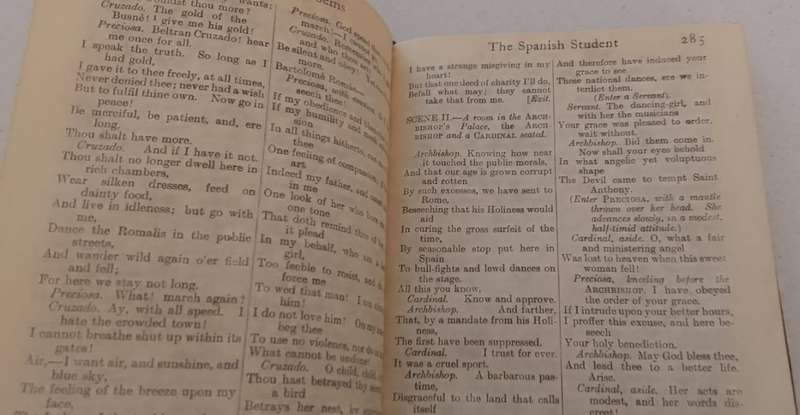 oems
want more?
wants:
Cruzado. The gold of the
Busné! I give me his gold!
Preciosa. Beltran Cruzado! hear
me once for all.
I speak the truth. So long as I
had gold,
I gave it to thee freely, at all times,
Never denied thee; never had a wish
But to fulfil thine own. Now go in
peace!
Be merciful, be patient, and, ere
long,
Thou shalt have more.
Cruzado. And if I have it not.
Thou shalt no longer dwell here in
rich chambers,
Wear silken dresses, feed on
dainty food,
And live in idleness; but go with
me,
Dance the Romalis in the public
streets,
And wander wild again o'er field
and fell;
For here we stay not long.
Preciosa. What! march again?
Cruzado. Ay, with all speed. I
hate the crowded town!
I cannot breathe shut up within its
gates!
Air,—I want air, and sunshine, and
blue sky,
The feeling of the breeze upon my
face,
Preciosa. God
march!
Cruzado.
and who
more.
Be silent and obey!
Bartolomé Román
Preciosa.
seech thee!
If my obedience and
If my humility and
sion
In all things hitherto,
thee
One feeling of compassion,
art
Indeed my father, and
in me
One look of her who
one tone
That doth remind thee of
it plead
In my behalf, who am a
girl,
Too feeble to resist, and
force me
To wed that man! I am
him!
I do not love him! On my
beg thee
To use no violence, nor do in
What cannot be undone!
Cruzado. O child, child,
Thou hast betrayed thy secret,
a bird
Betrays her nest, by
The Spanish Student
285
I have a strange misgiving in my
heart!
But that one deed of charity I'll do,
Befall what may; they cannot
take that from me. [Exit.
SCENE II.—A room in the ARCH-
BISHOP'S Palace, the ARCH-
BISHOP and a CARDINAL seated.
Archbishop. Knowing how near
it touched the public morals,
And that our age is grown corrupt
and rotten
By such excesses, we have sent to
Rome,
Beseeching that his Holiness would
aid
In curing the gross surfeit of the
time,
By seasonable stop put here in
Spain
To bull-fights and lewd dances on
the stage.
All this you know.
Cardinal. Know and approve.
Archbishop. And farther,
That, by a mandate from his Holi-
ness,
The first have been suppressed.
Cardinal. I trust for ever.
It was a cruel sport.
Archbishop. A barbarous pas-
time,
Disgraceful to the land that calls
itself
And therefore have induced your
grace to see
These national dances, ere we in-
terdict them.
(Enter a Servant).
Servant. The dancing-girl, and
with her the musicians
Your grace was pleased to order,
wait without.
Archbishop. Bid them come in.
Now shall your eyes behold
In what angelic yet voluptuous
shape
The Devil came to tempt Saint
Anthony.
(Enter PRECIOSA, with a mantle
thrown over her head. She
advances slowly, in a modest,
half-timid attitude.)
Cardinal, aside. O, what a fair
and ministering angel
Was lost to heaven when this sweet
woman fell!
Preciosa, kneeling before the
ARCHBISHOP. I have obeyed
the order of your grace.
If I intrude upon your better hours,
I proffer this excuse, and here be-
seech
Your holy benediction.
Archbishop. May God bless thee,
And lead thee to a better life.
Arise.
Cardinal, aside. Her acts are
modest, and her words dis-
creet!